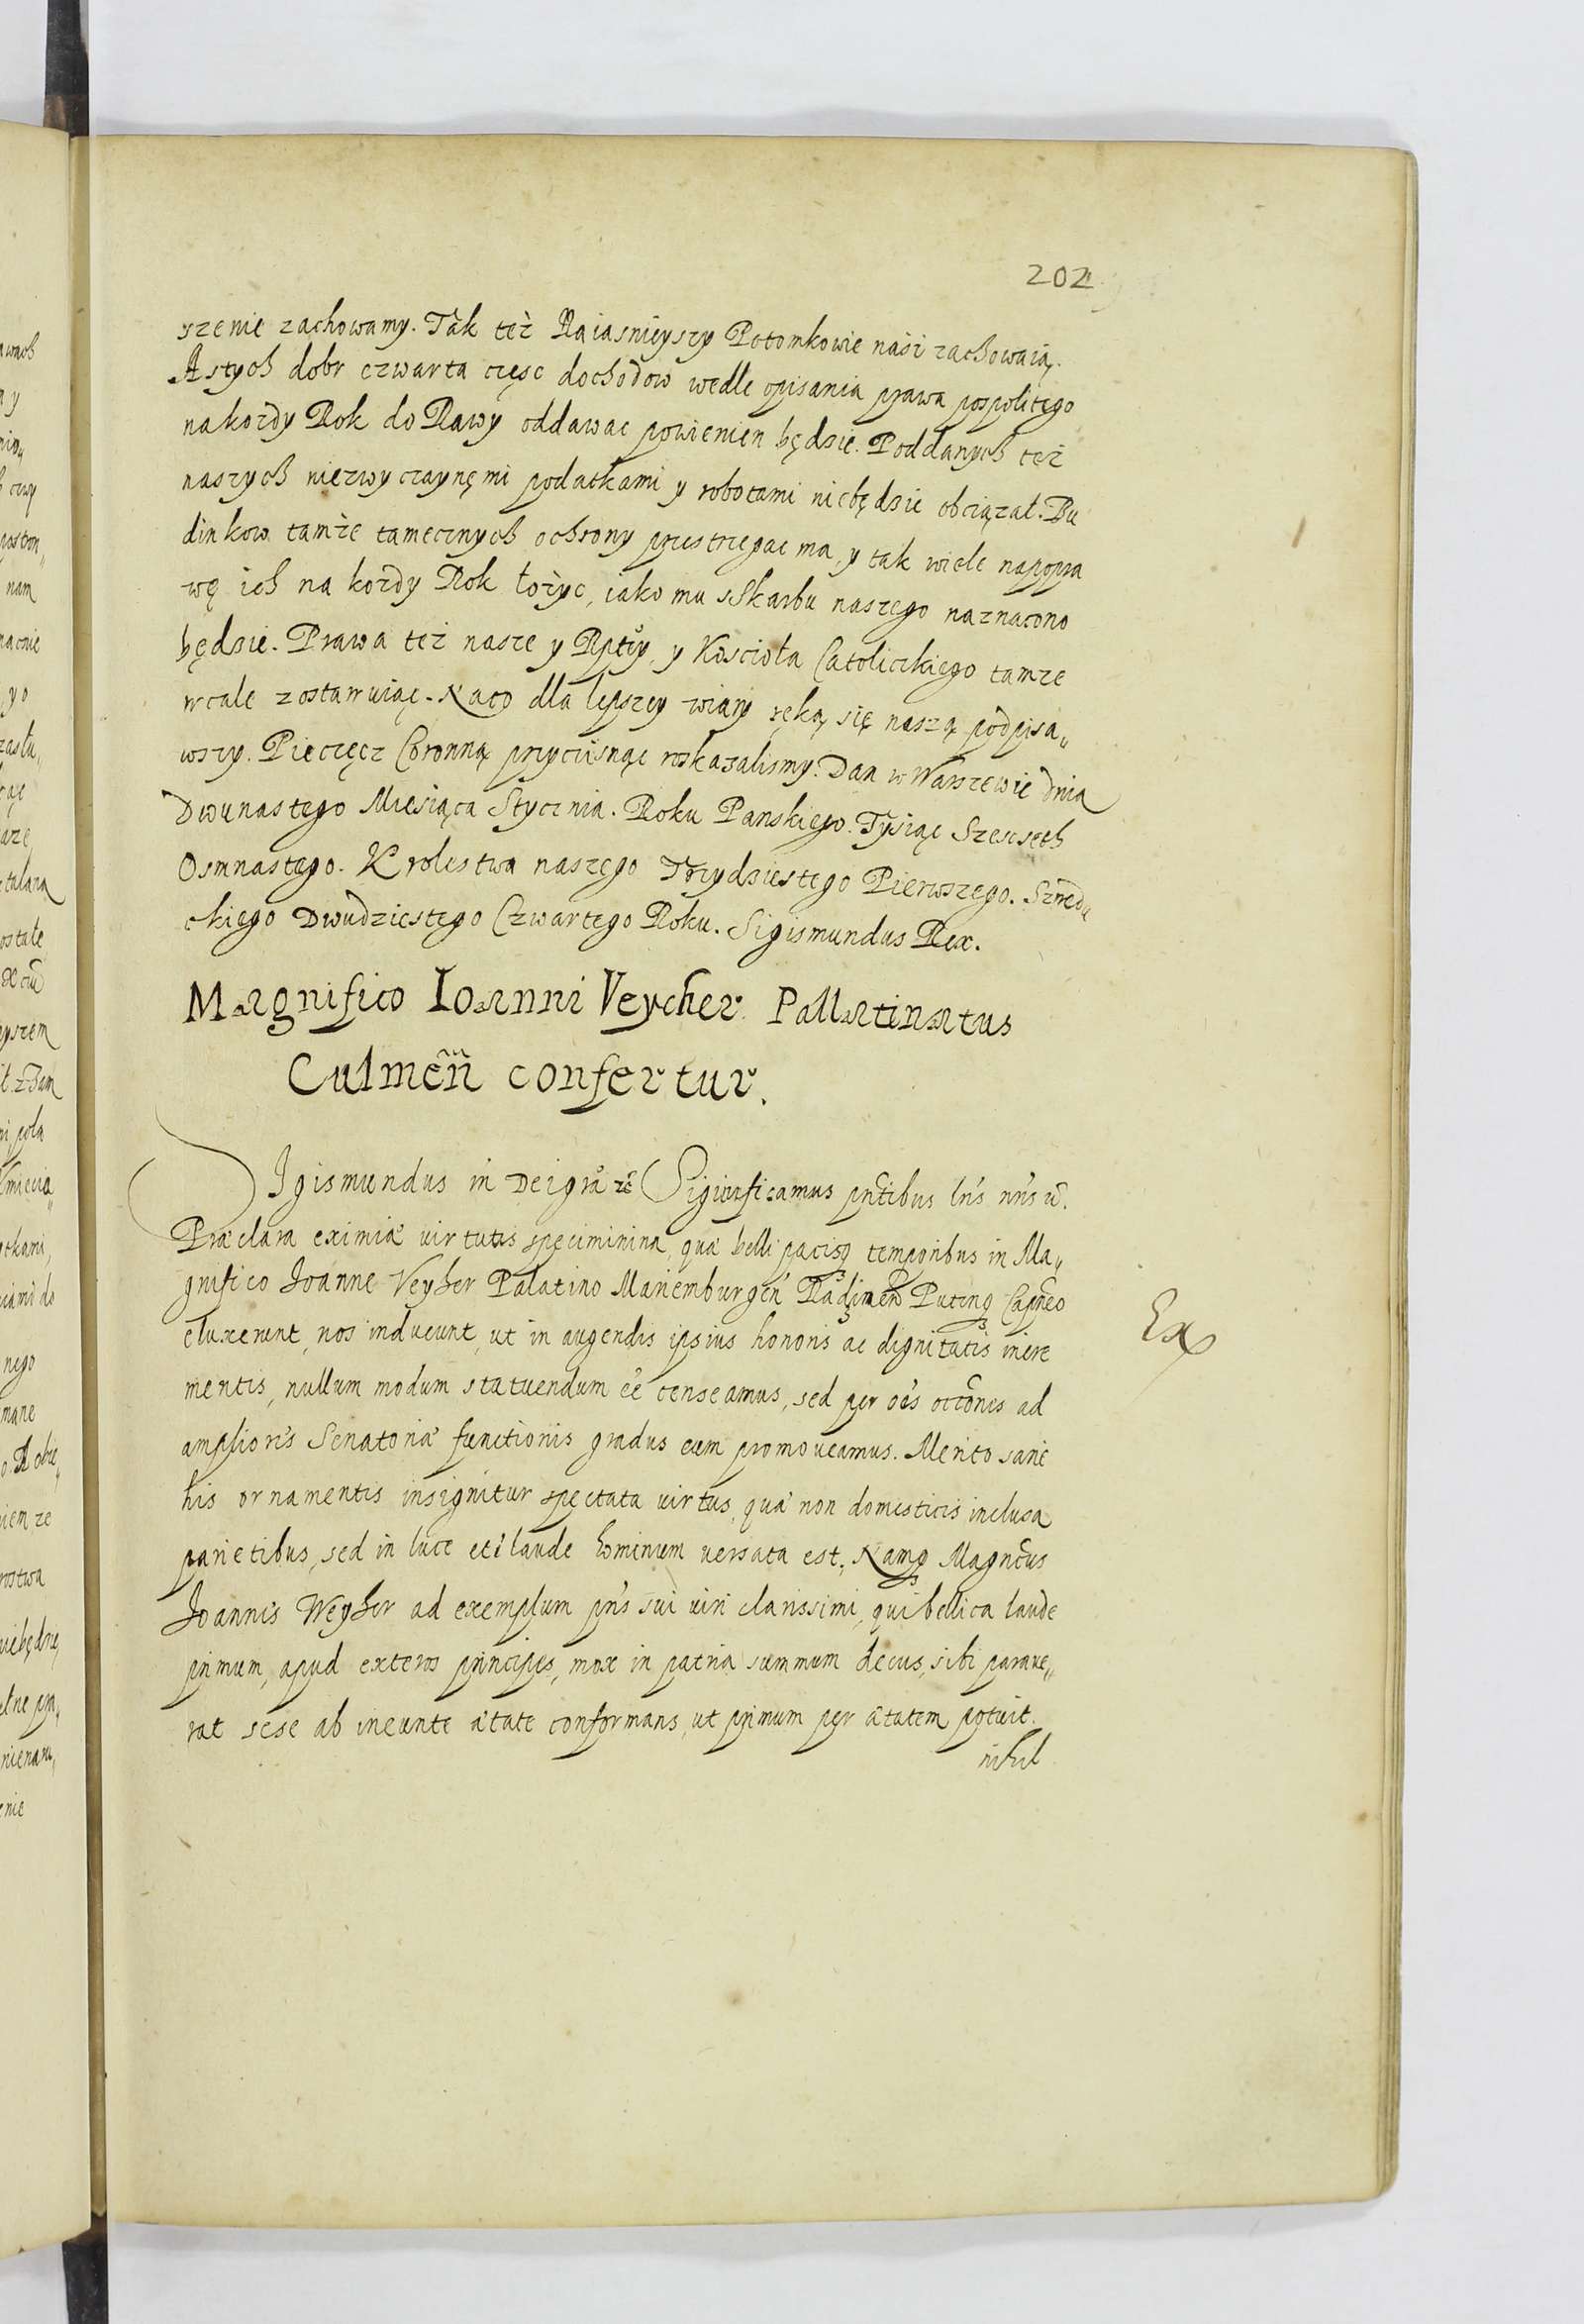 202
szenie zachowamy. Tak też Naiasnieyszy Potomkowie nasi zachowaią.
A stych dobr czwarta częsc dochodow wedle opisania prawa pospolitego
na kozdy Rok do Rawy oddawac powienien będzie. Poddanych też
naszych niezwyczaynęmi podatkami y robotami niebędzie obciązał. Bu
dinkow tamże tamecznych ochrony przestrzegac ma, y tak wiele napopra
wę ich na kozdy Rok łożyc, iako mu sSkarbu naszego naznacono
będzie. Prawa też nasze y Rptey, y Koscioła Catolickiego tamze
wcale zostawuiąc. Naco dla lepszey wiary ręką się naszą podpisa„
wszy. Pieczęcz Coronną przycisnąc roskazalismy. Dan w Warszewie dnia
Dwunastego Miesiąca Stycznia. Roku Panskiego. Tysiąc Szescseth
Osmnastego. Krolestwa naszego Trzydziestego Pierwszego. Szwedz
ckiego Dwudziestego Czwartego Roku. Sigismundus Rex.
Magnifico Ioanni Veycher Pallatinatus
Culmeñ confertur.
Igismundus in Dei gra zc Significamus pntibus lris nris
Præclara eximiæ virtutis speciminina, quæ belli pacisq temporibus in Ma„
gnifico Joanne Veyher Palatino Mariemburgen Radzinen Putcnq Capneo
eluxerunt, nos inducunt, ut in augendis ipsius honoris ac dignitatis incre
mentis, nullum modum statuendum eē censeamus, sed per oēs occones ad
ampliores Senatoriæ functionis gradus eum promoveamus. Merito sane
his ornamentis insignitur spectata virtus, quæ non domesticis inclusa
parietibus, sed in luce et laude hominum versata est. Namq Magncus
Joannes Weyher ad exemplum pris sui viri clarissimi, qui bellica laude
primum, apud exteros principes, mox in patria summum decus, sibi parave„
rat sese ab ineunte ætate conformans, ut primum per ætatem potuit.
nihil
Ex